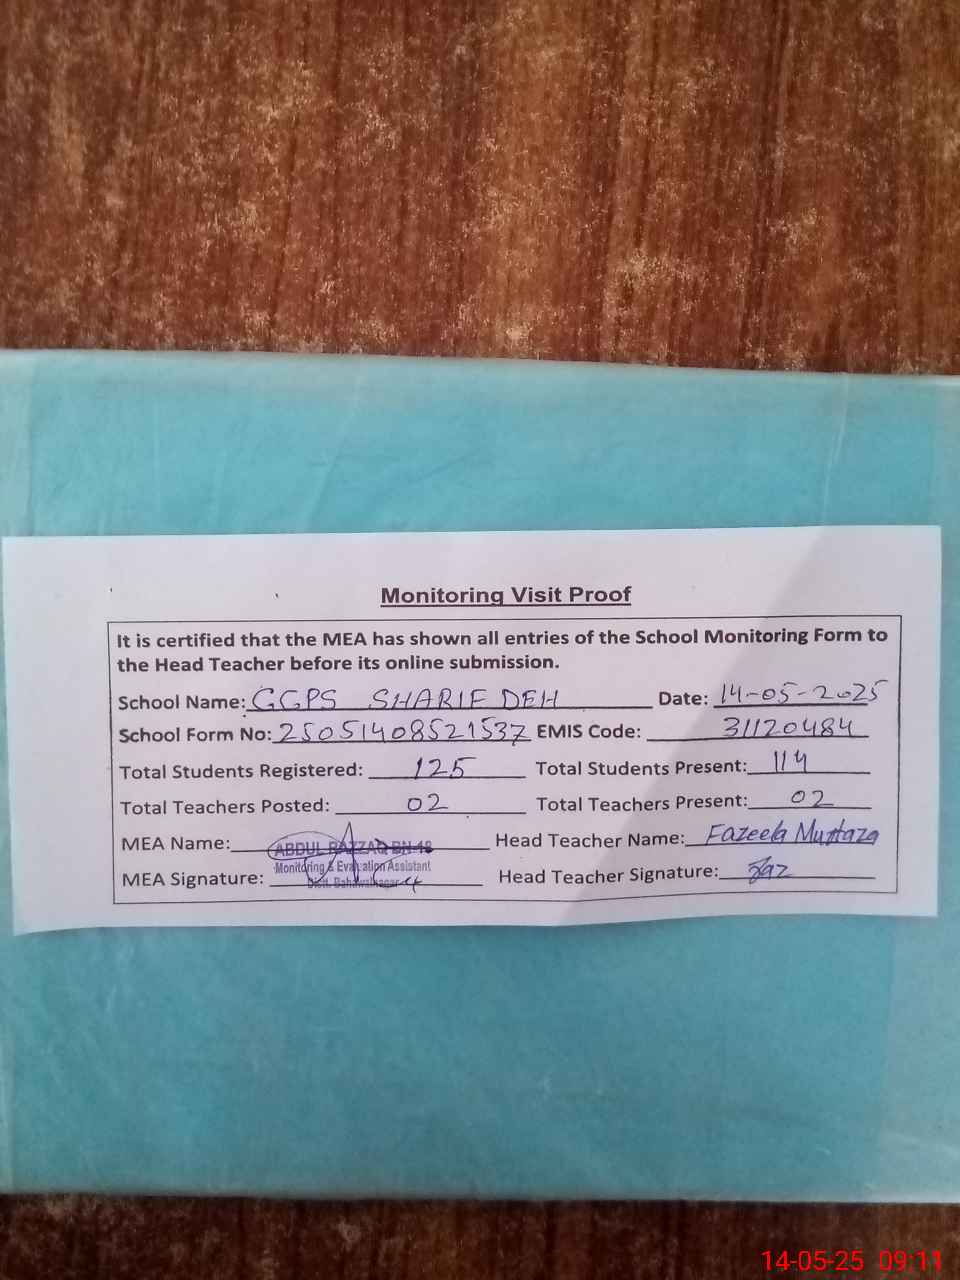 Monitoring Visit Proof
It is certified that the MEA has shown all entries of the School Monitoring Form to
the Head Teacher before its online submission.
School Name: GGPS SHARIF DEH Date: 14-05-2025
School Form No: 25051408521537 EMIS Code: 31120484
Total Students Registered: 125 Total Students Present: 114
Total Teachers Posted: 02 Total Teachers Present: 02
MEA Name: ABDUL RAZZAQ BN-48 Head Teacher Name: Fazeela Murtaza
Monitoring & Evaluation Assistant
MEA Signature: Distt. Bahawalnagar Head Teacher Signature:
14-05-25 09:11